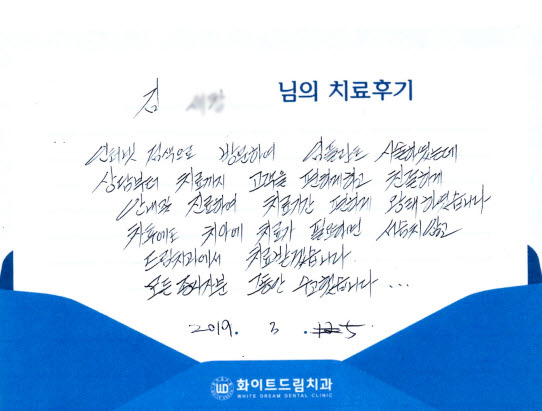 김 님의 치료후기
인터넷 검색으로 방문하여 임플란트 시술하였는데
상담부터 치료까지 고객을 편하게하고 친절하게
안내와 진료하여 치료기간 편하게 왕래하였습니다
차후에도 치아에 치료가 필요하면 서슴치않고
드림치과에서 치료받겠습니다.
모든 종사자분 그동안 수고했습니다 ...
2019. 3. 5
화이트드림치과
WHITE DREAM DENTAL CLINIC